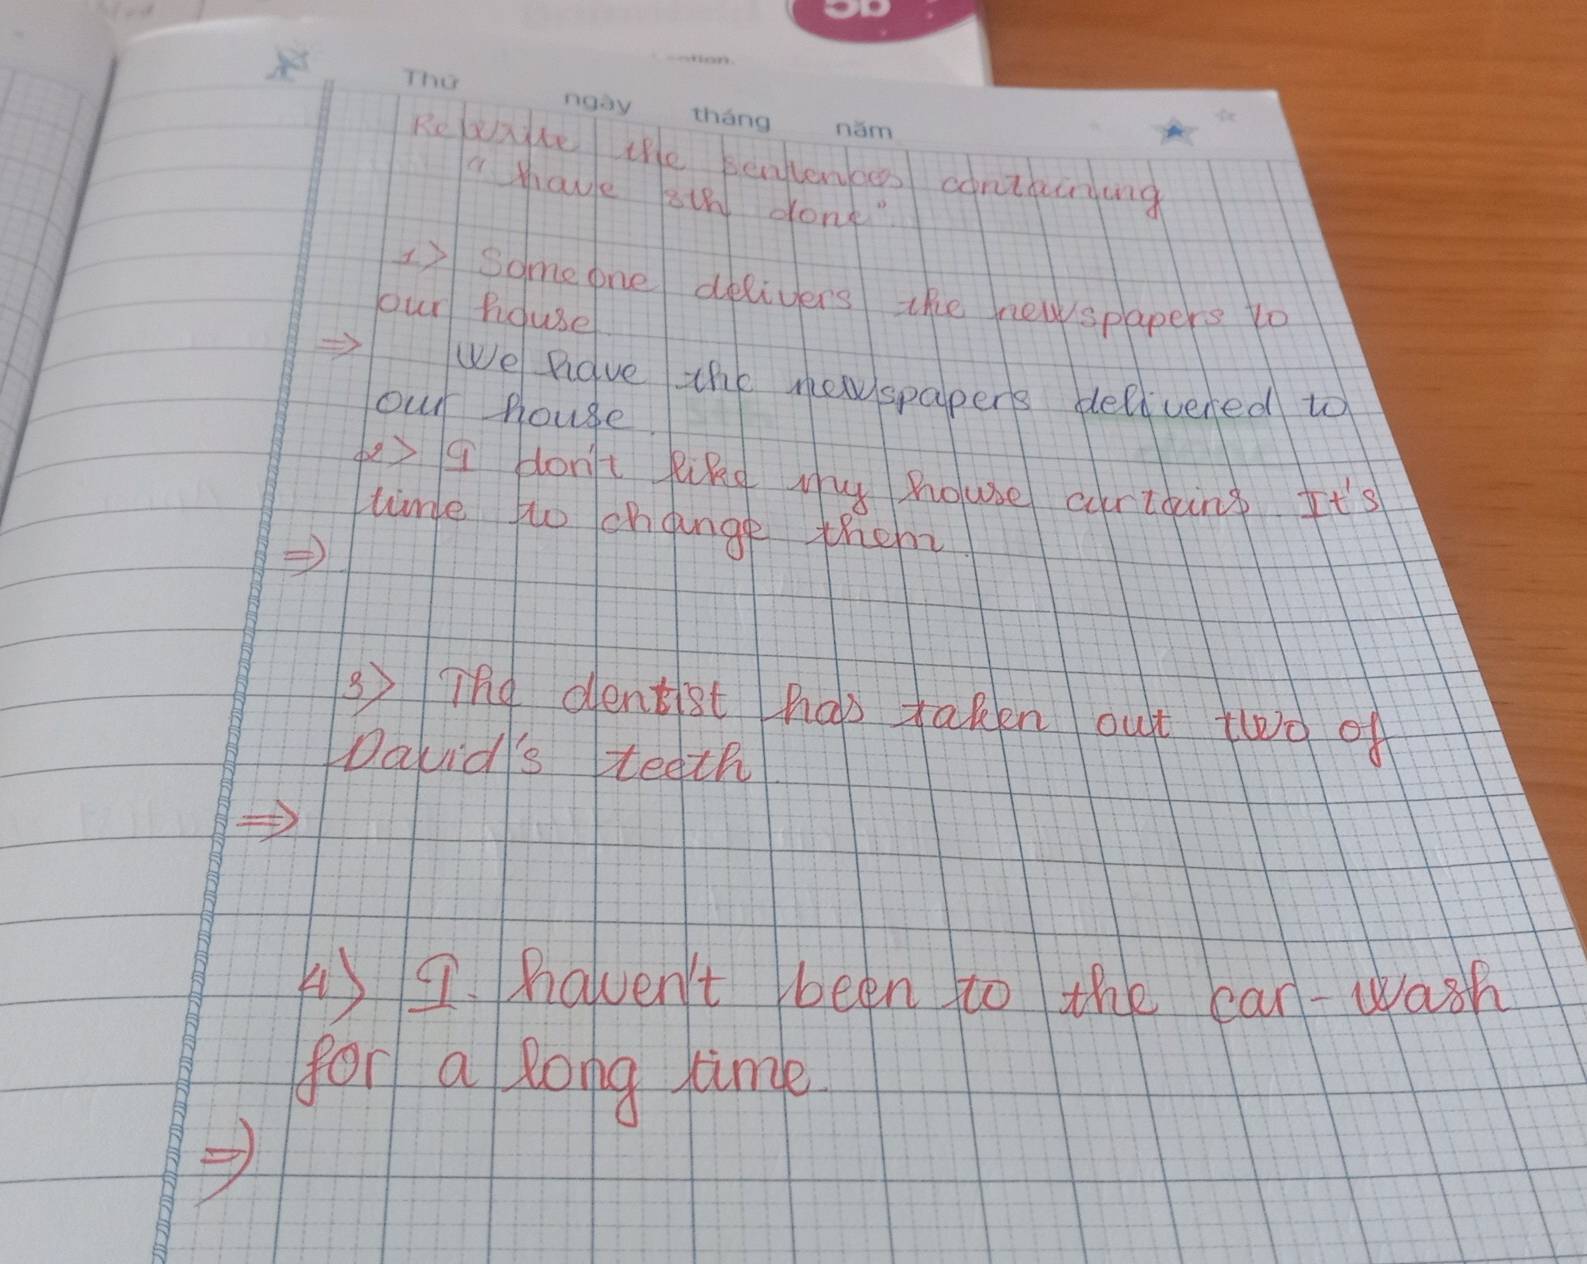 5b
Thứ ngày tháng năm
Rewrite the sentences containing
"have sth done"
1> Someone delivers the newspapers to
our house
⇒ We have the newspapers delivered to
our house.
2> I don't like my house curtains. It's
time to change them.
⇒
3> The dentist has taken out two of
David's teeth
⇒
4> I haven't been to the car-wash
for a long time.
⇒